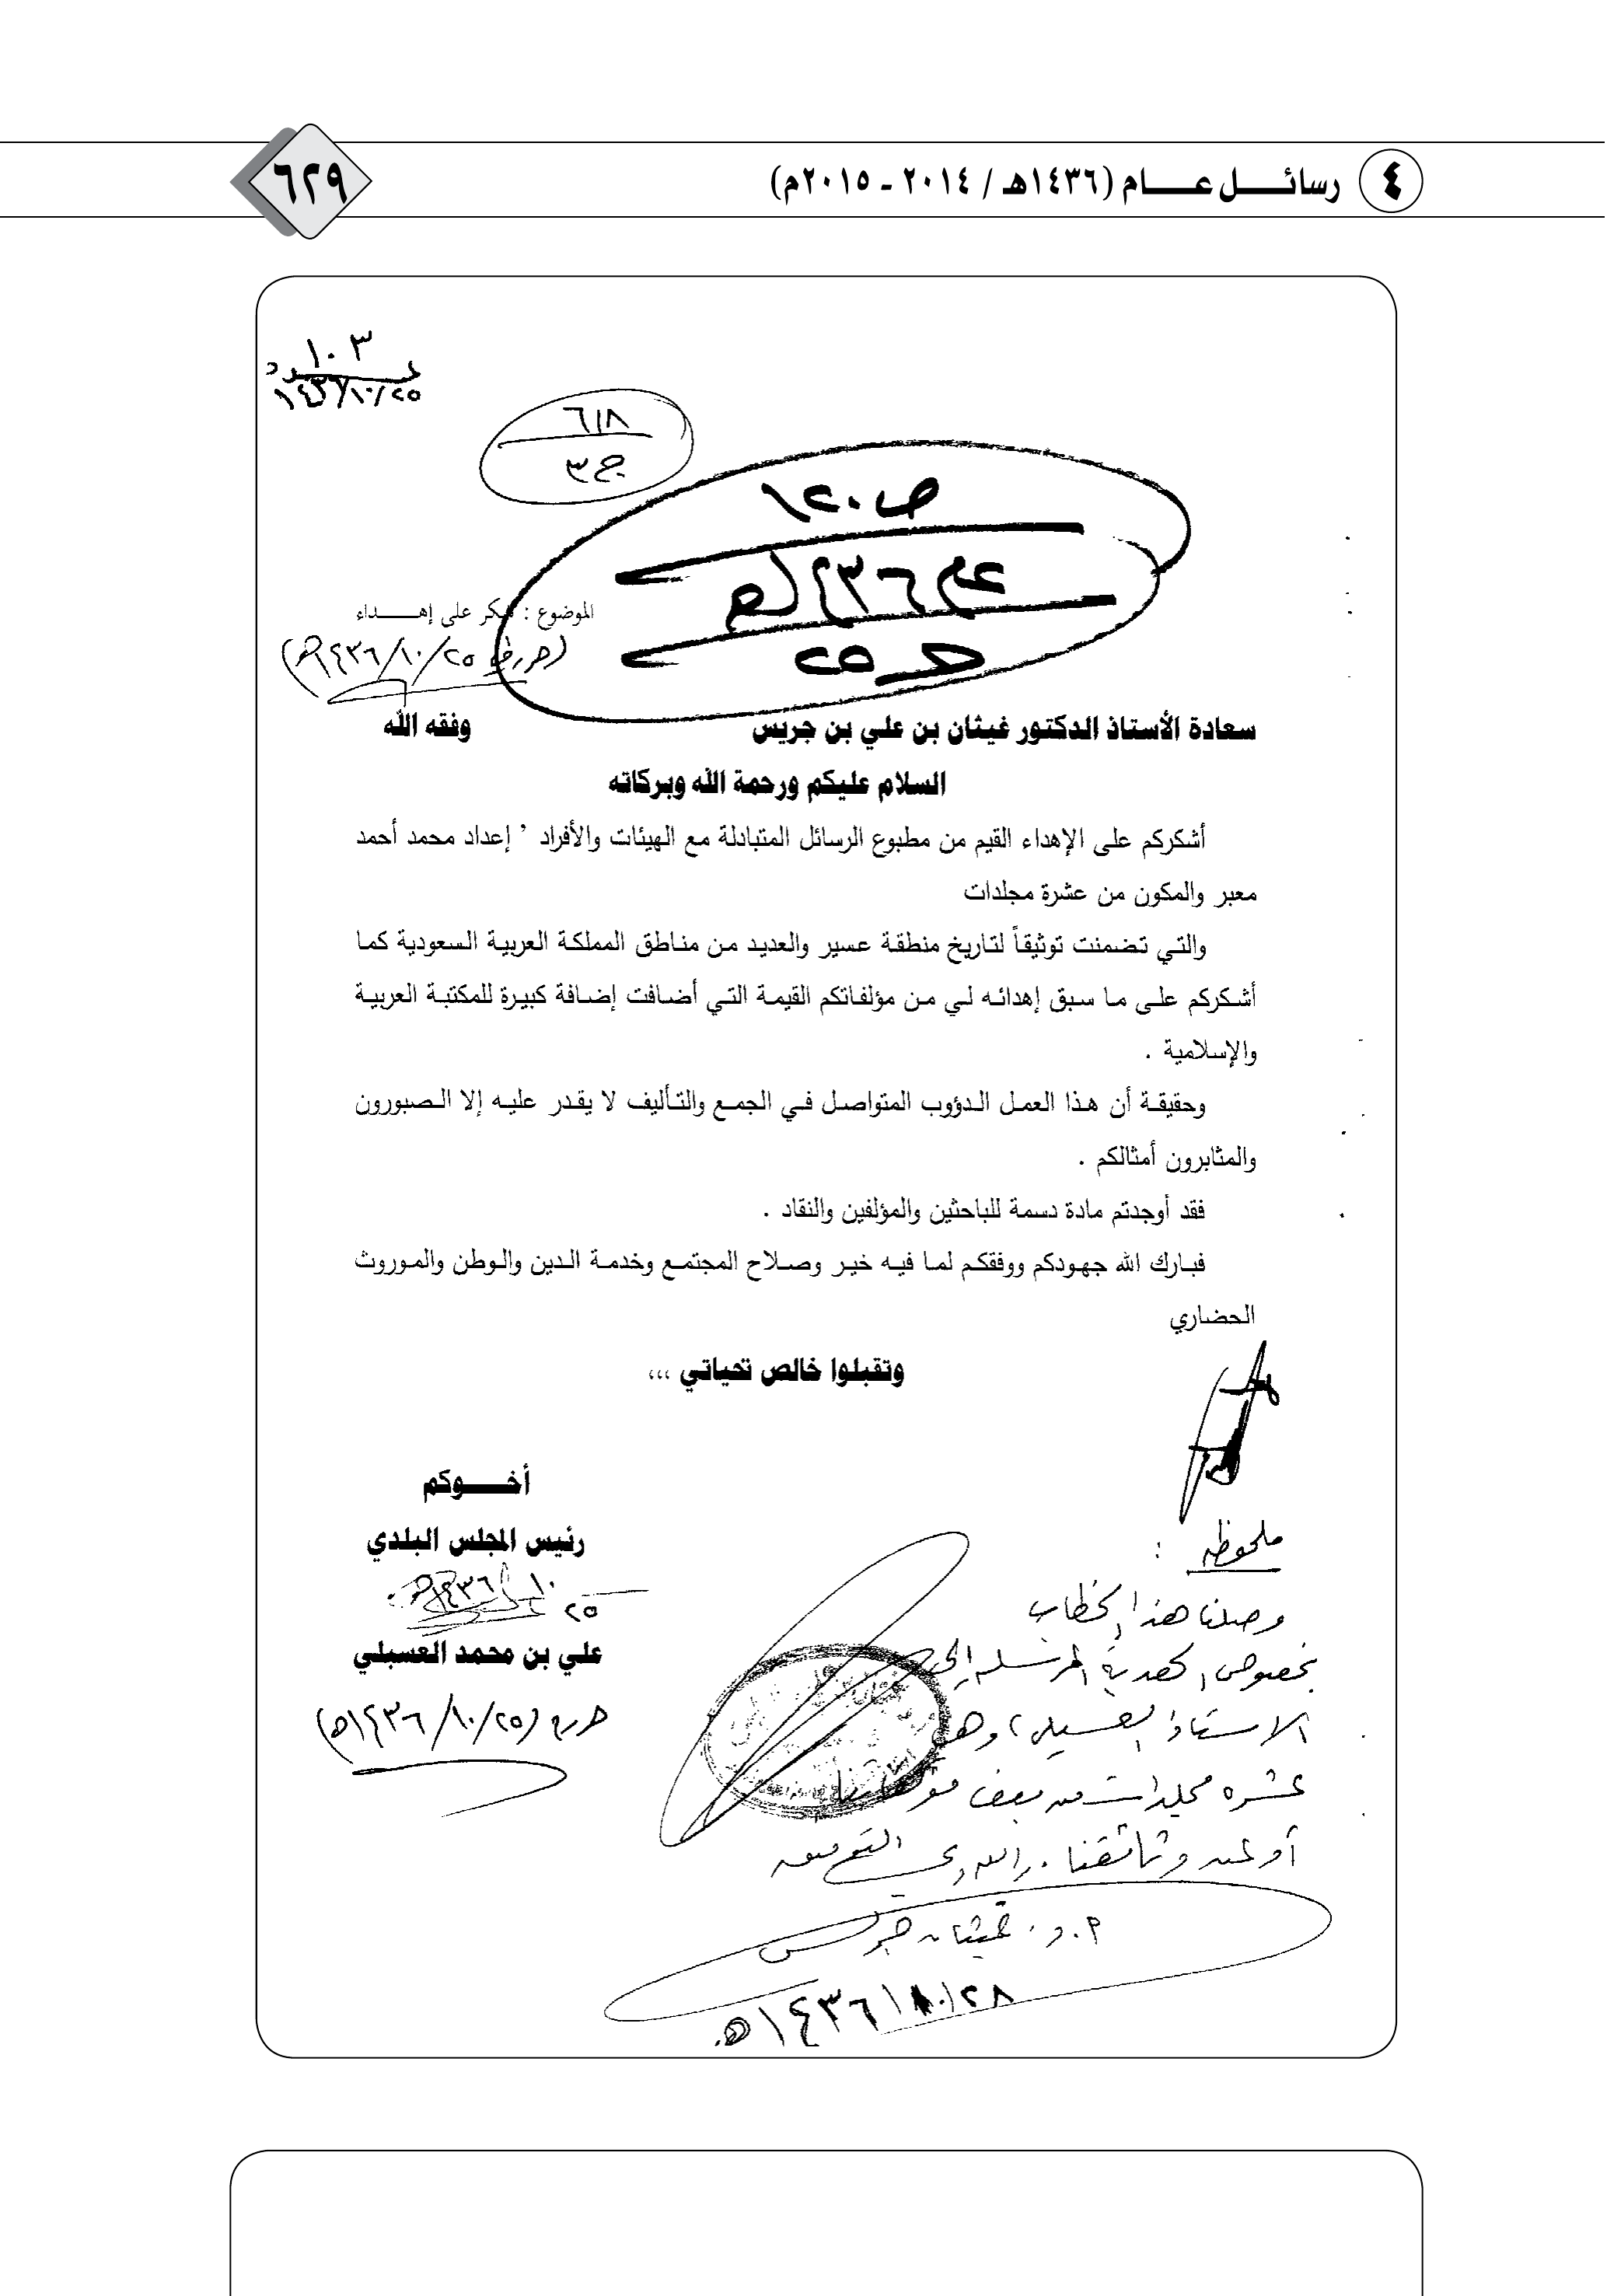 ٤ رسائـــل عـــام (١٤٣٦هـ / ٢٠١٤ - ٢٠١٥م)
٦٢٩
١٠٣
١٤٣٦/١٠/٢٥
٦١٨
ج٣
ص١٢٠
عام ١٤٣٦هـ
ح٢٥
الموضوع : شكر على إهـــداء
١٤٣٦/١٠/٢٥هـ
سعادة الأستاذ الدكتور غيثان بن علي بن جريس وفقه الله
السلام عليكم ورحمة الله وبركاته
أشكركم على الإهداء القيم من مطبوع الرسائل المتبادلة مع الهيئات والأفراد ' إعداد محمد أحمد
معبر والمكون من عشرة مجلدات
والتي تضمنت توثيقاً لتاريخ منطقة عسير والعديد من مناطق المملكة العربية السعودية كما
أشكركم على ما سبق إهدائه لي من مؤلفاتكم القيمة التي أضافت إضافة كبيرة للمكتبة العربية
والإسلامية .
وحقيقة أن هذا العمل الدؤوب المتواصل في الجمع والتأليف لا يقدر عليه إلا الصبورون
والمثابرون أمثالكم .
فقد أوجدتم مادة دسمة للباحثين والمؤلفين والنقاد .
فبارك الله جهودكم ووفقكم لما فيه خير وصلاح المجتمع وخدمة الدين والوطن والموروث
الحضاري
وتقبلوا خالص تحياتي ،،،
أخـــوكم
رئيس المجلس البلدي
١٤٣٦/١٠/٢٥هـ
علي بن محمد العسبلي
حرر في (١٤٣٦/١٠/٢٥هـ)
ملحوظه :
وصلنا هذا الخطاب
بخصوص الهدية المرسله إلى
الاستاذ العسبلي، وهي
عشره مجلدات من بعض مؤلفاتنا
أو من وثائقنا . والله ولي التوفيق
أ.د. غيثان جريس
١٤٣٦/١٠/٢٨هـ